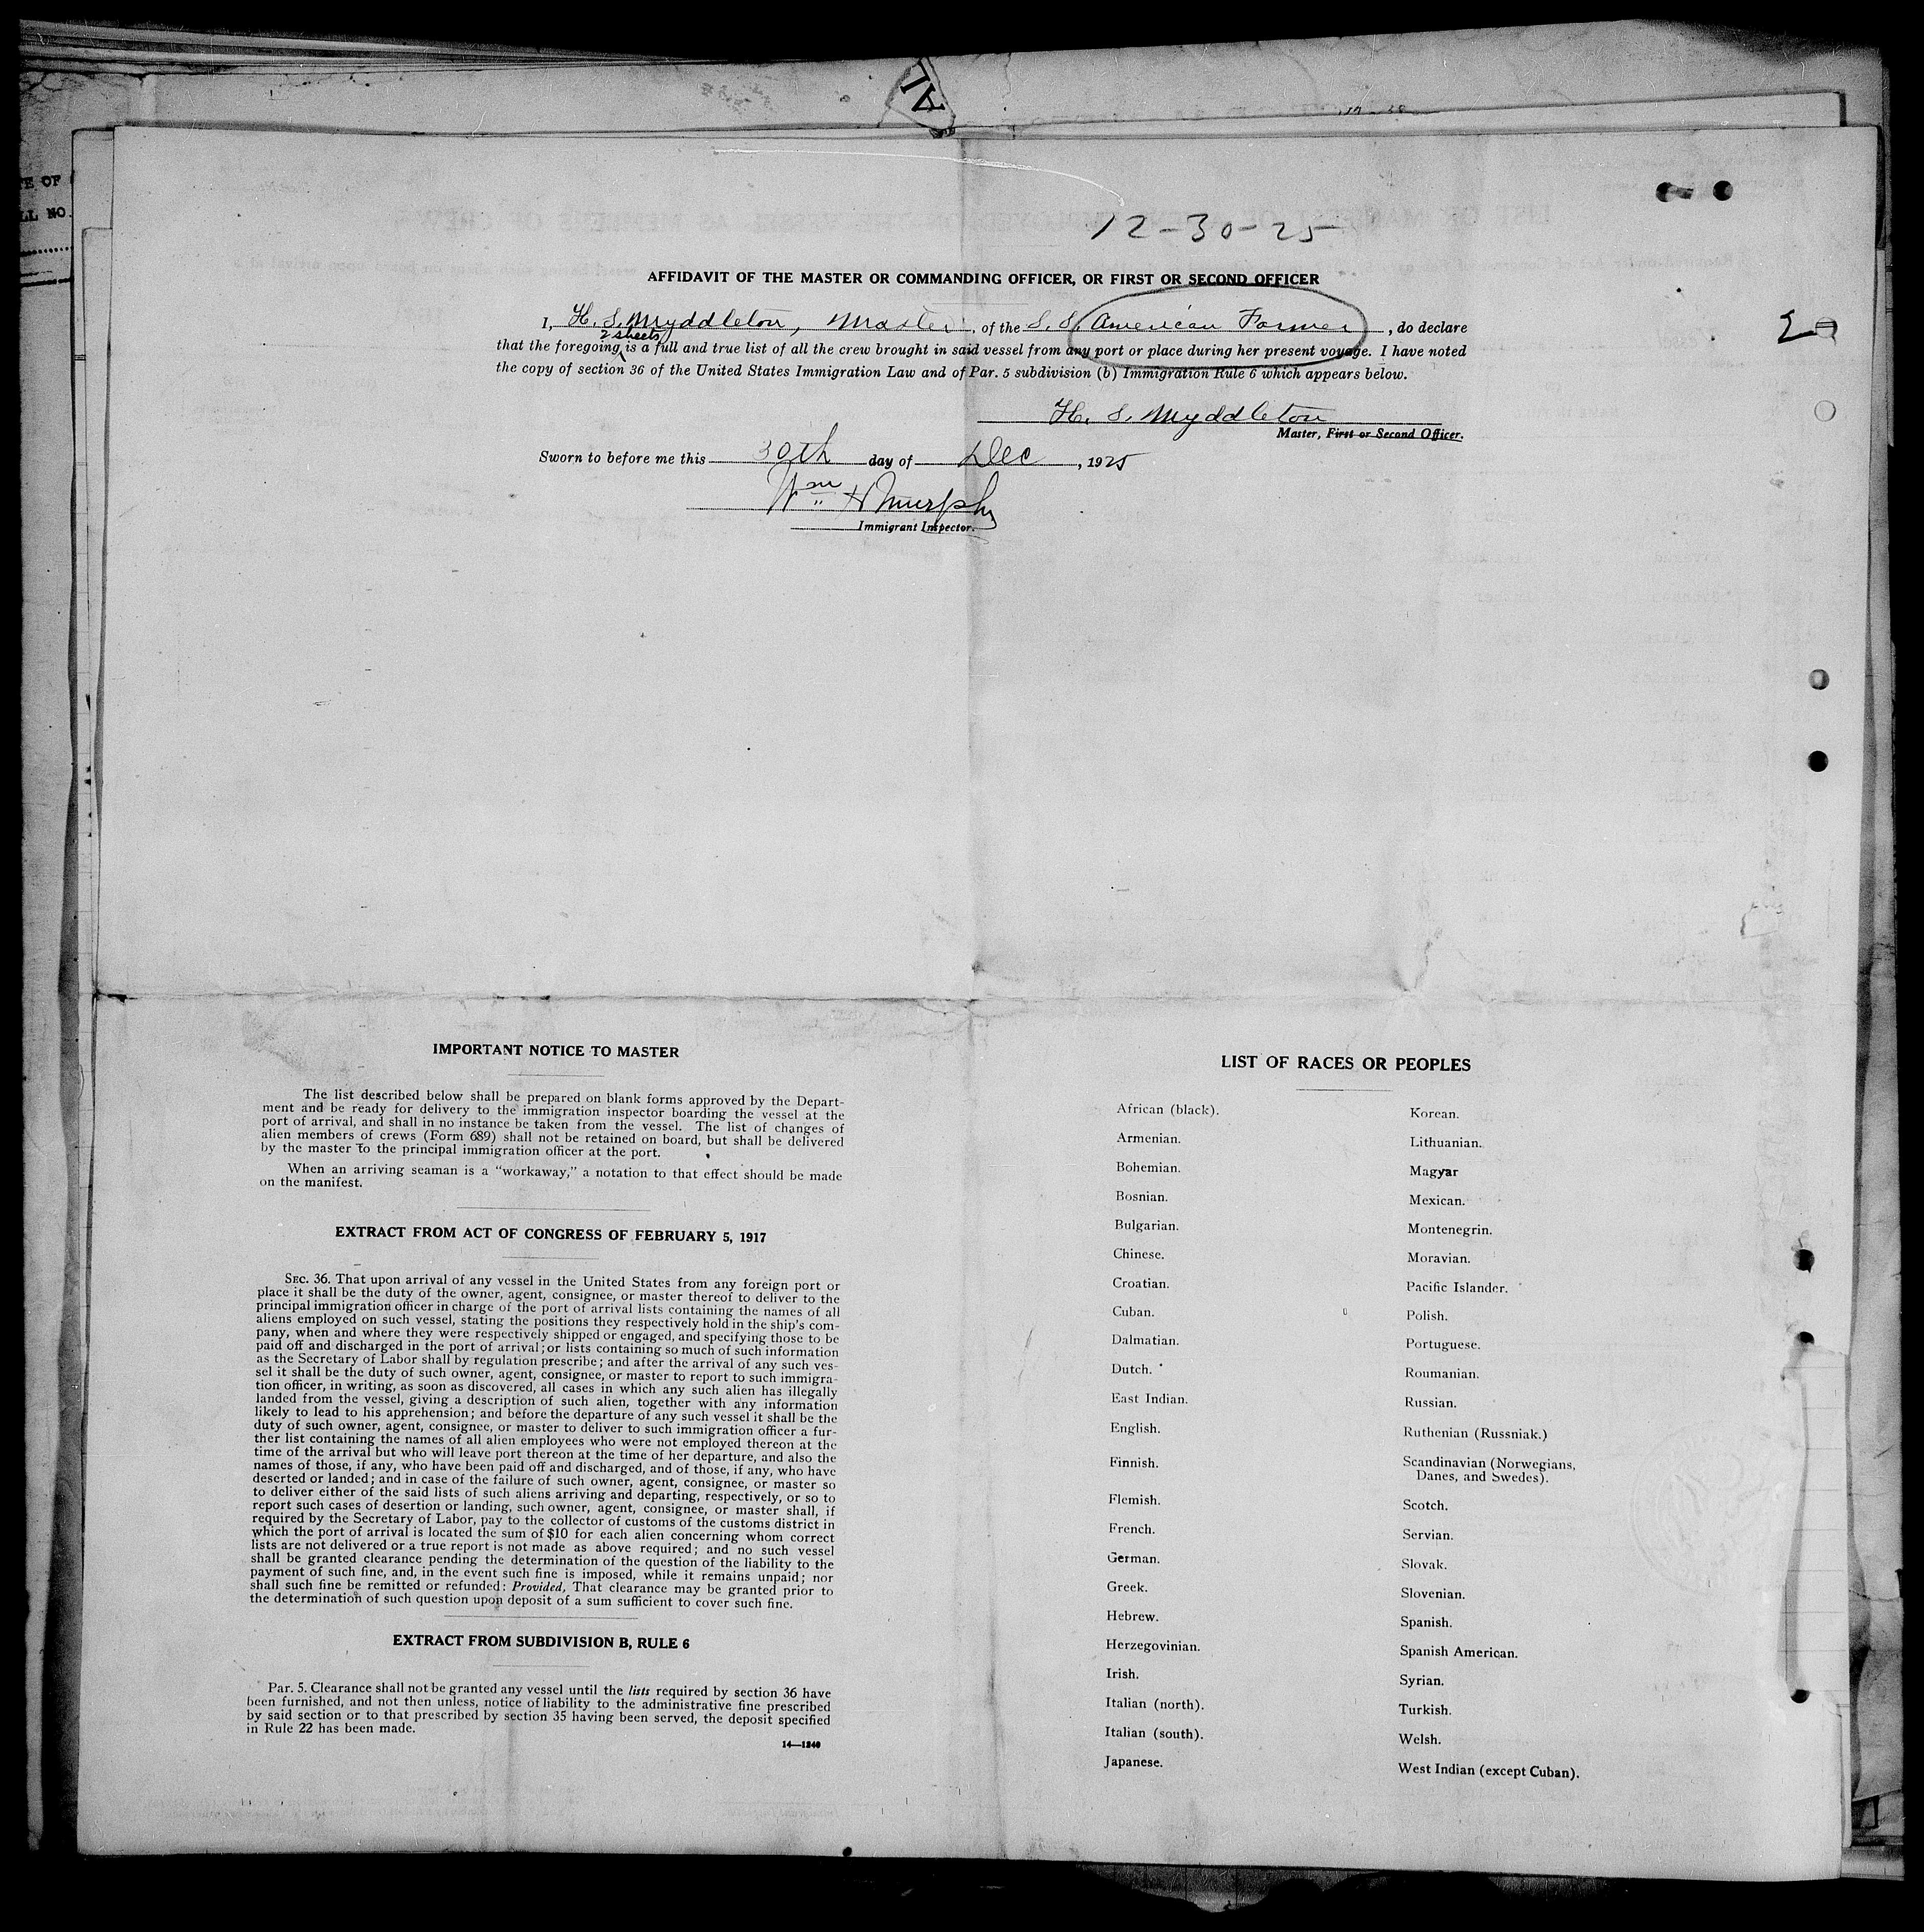 AL
TE OF
LL NO.
12-30-25
AFFIDAVIT OF THE MASTER OR COMMANDING OFFICER, OR FIRST OR SECOND OFFICER
I, H. S. Myddleton, Master, of the S. S. American Farmer, do declare
2 sheets
that the foregoing is a full and true list of all the crew brought in said vessel from any port or place during her present voyage. I have noted
the copy of section 36 of the United States Immigration Law and of Par. 5 subdivision (b) Immigration Rule 6 which appears below.
H. S. Myddleton
Master, First or Second Officer.
Sworn to before me this 30th day of Dec, 1925
Wm H Murphy
Immigrant Inspector.
IMPORTANT NOTICE TO MASTER
The list described below shall be prepared on blank forms approved by the Depart-
ment and be ready for delivery to the immigration inspector boarding the vessel at the
port of arrival, and shall in no instance be taken from the vessel. The list of changes of
alien members of crews (Form 689) shall not be retained on board, but shall be delivered
by the master to the principal immigration officer at the port.
When an arriving seaman is a "workaway," a notation to that effect should be made
on the manifest.
EXTRACT FROM ACT OF CONGRESS OF FEBRUARY 5, 1917
SEC. 36. That upon arrival of any vessel in the United States from any foreign port or
place it shall be the duty of the owner, agent, consignee, or master thereof to deliver to the
principal immigration officer in charge of the port of arrival lists containing the names of all
aliens employed on such vessel, stating the positions they respectively hold in the ship's com-
pany, when and where they were respectively shipped or engaged, and specifying those to be
paid off and discharged in the port of arrival; or lists containing so much of such information
as the Secretary of Labor shall by regulation prescribe; and after the arrival of any such ves-
sel it shall be the duty of such owner, agent, consignee, or master to report to such immigra-
tion officer, in writing, as soon as discovered, all cases in which any such alien has illegally
landed from the vessel, giving a description of such alien, together with any information
likely to lead to his apprehension; and before the departure of any such vessel it shall be the
duty of such owner, agent, consignee, or master to deliver to such immigration officer a fur-
ther list containing the names of all alien employees who were not employed thereon at the
time of the arrival but who will leave port thereon at the time of her departure, and also the
names of those, if any, who have been paid off and discharged, and of those, if any, who have
deserted or landed; and in case of the failure of such owner, agent, consignee, or master so
to deliver either of the said lists of such aliens arriving and departing, respectively, or so to
report such cases of desertion or landing, such owner, agent, consignee, or master shall, if
required by the Secretary of Labor, pay to the collector of customs of the customs district in
which the port of arrival is located the sum of $10 for each alien concerning whom correct
lists are not delivered or a true report is not made as above required; and no such vessel
shall be granted clearance pending the determination of the question of the liability to the
payment of such fine, and, in the event such fine is imposed, while it remains unpaid; nor
shall such fine be remitted or refunded: Provided, That clearance may be granted prior to
the determination of such question upon deposit of a sum sufficient to cover such fine.
EXTRACT FROM SUBDIVISION B, RULE 6
Par. 5. Clearance shall not be granted any vessel until the lists required by section 36 have
been furnished, and not then unless, notice of liability to the administrative fine prescribed
by said section or to that prescribed by section 35 having been served, the deposit specified
in Rule 22 has been made.
14—1240
LIST OF RACES OR PEOPLES
African (black).
Armenian.
Bohemian.
Bosnian.
Bulgarian.
Chinese.
Croatian.
Cuban.
Dalmatian.
Dutch.
East Indian.
English.
Finnish.
Flemish.
French.
German.
Greek.
Hebrew.
Herzegovinian.
Irish.
Italian (north).
Italian (south).
Japanese.
Korean.
Lithuanian.
Magyar
Mexican.
Montenegrin.
Moravian.
Pacific Islander.
Polish.
Portuguese.
Roumanian.
Russian.
Ruthenian (Russniak.)
Scandinavian (Norwegians,
Danes, and Swedes).
Scotch.
Servian.
Slovak.
Slovenian.
Spanish.
Spanish American.
Syrian.
Turkish.
Welsh.
West Indian (except Cuban).